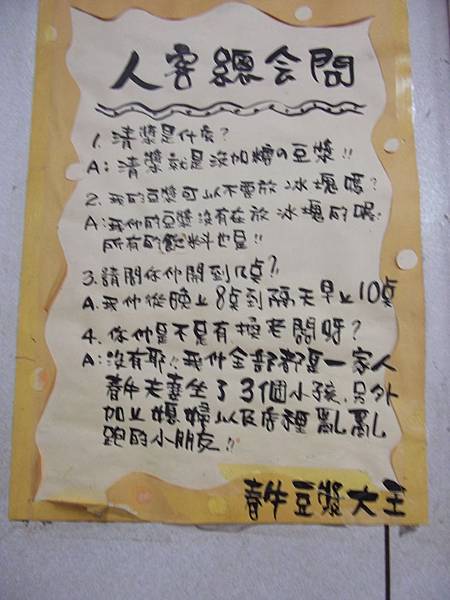 人客總会問
1. 清漿是什麼?
A: 清漿就是沒加糖の豆漿!!
2. 我的豆漿可以不要放冰塊嗎?
A: 我们的豆漿沒有在放冰塊的喔
所有的飲料也是!!
3. 請問你们開到几点?
A. 我们從晚上8点到隔天早上10点
4. 你们是不是有換老闆呀?
A: 沒有耶!! 我们全部都是一家人
春牛夫妻生了3個小孩,另外
加上媳婦以及店裡亂亂
跑的小朋友!!
春牛豆漿大王